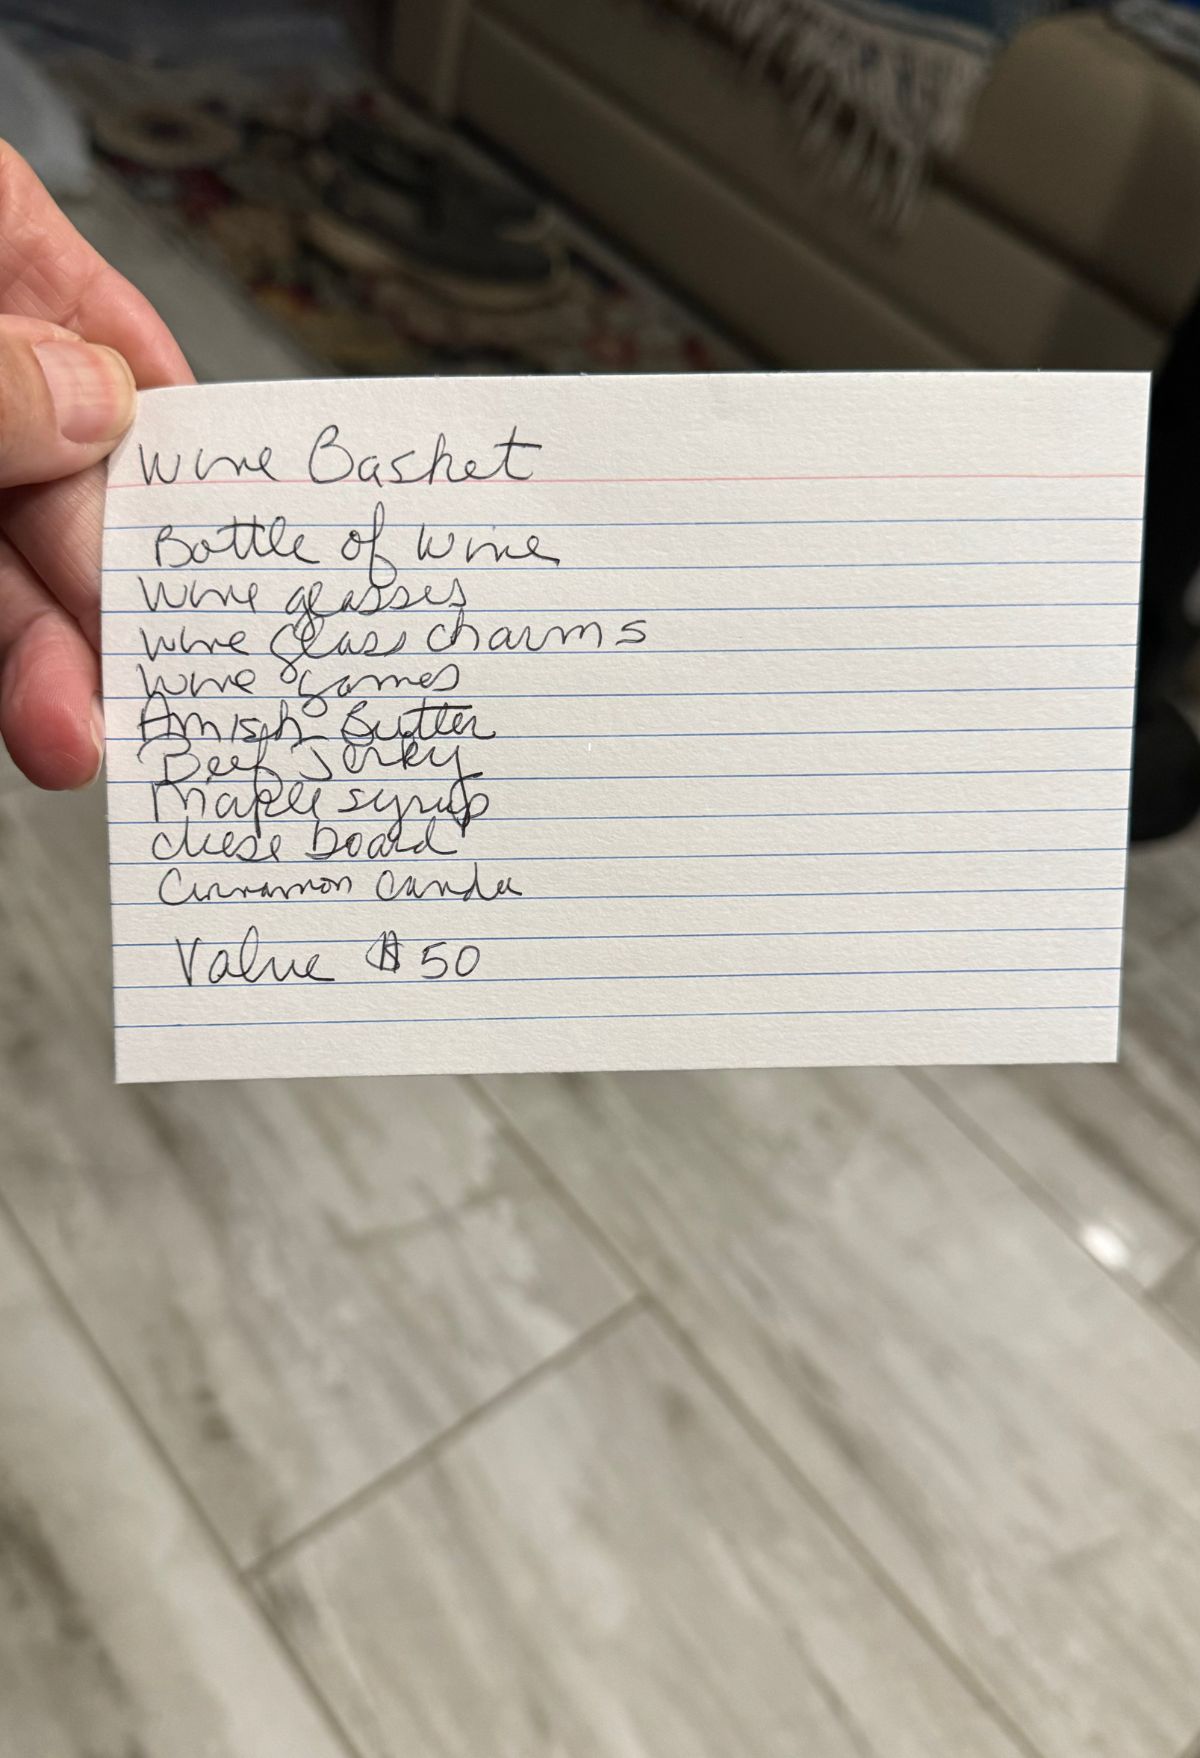 Wine Basket
Bottle of wine
Wine glasses
Wine glass charms
Wine games
Amish Butter
Beef Jerky
Maple syrup
cheese board
Cinnamon
Value $50